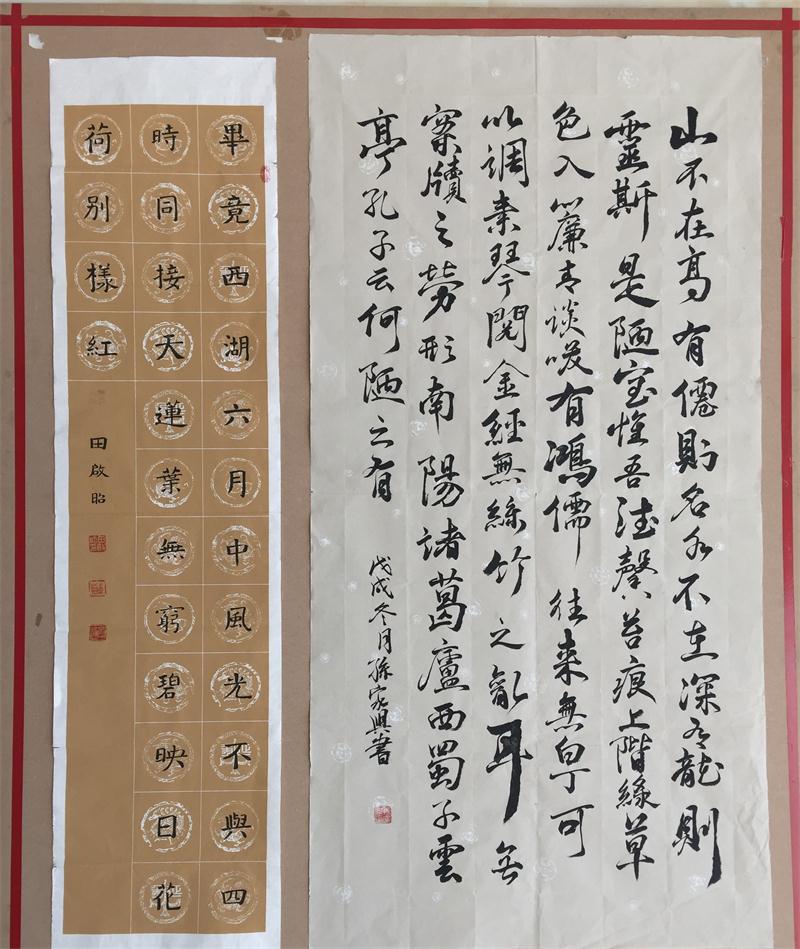 山不在高有僊則名水不在深有龍則
靈斯是陋室惟吾德馨苔痕上階緣草
色入簾青談咲有鴻儒往來無白丁可
以調素琴閱金經無絲竹之亂耳無
案牘之勞形南陽諸葛廬西蜀子雲
亭孔子云何陋之有
戊戌冬月孫家興書
畢竟西湖六月中風光不與四
時同接天蓮葉無窮碧映日花
荷別樣紅
田啟昭